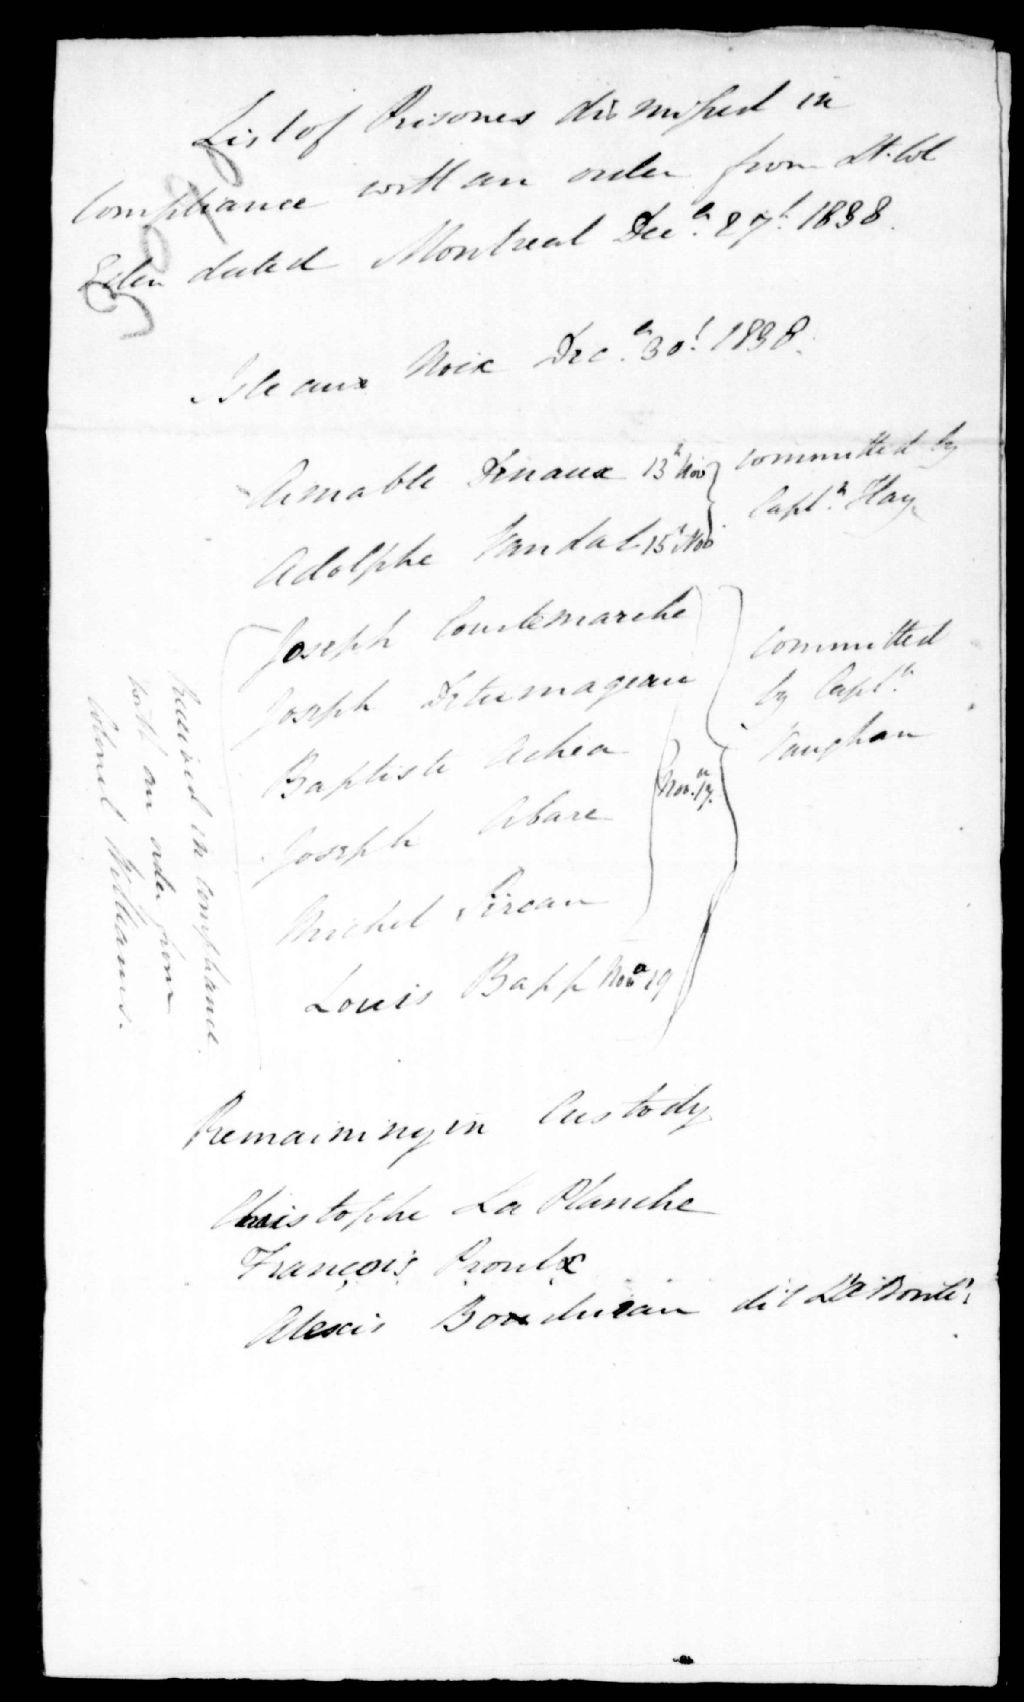 List of Prisones dismissed in
Compliance with an order from Lt. Col
Eden dated Montreal Decr. 27t. 1838.
Isle aux Noix Decr. 30t. 1838.
Amable 13th Nov } committed by
Captn. Hay
Adolphe Vandal 15th Nov
Joseph Courtemarche
Joseph
Baptiste
Joseph Abare
Michel
Louis Bapp Nov 19
Nov. 17.
committed
by Captn.
Vaughan
Received in compliance
with an order from
Colonel Williams.
Remaining in Custody
Christophe La Planche
François Proulx
Alexis dit La Bonté